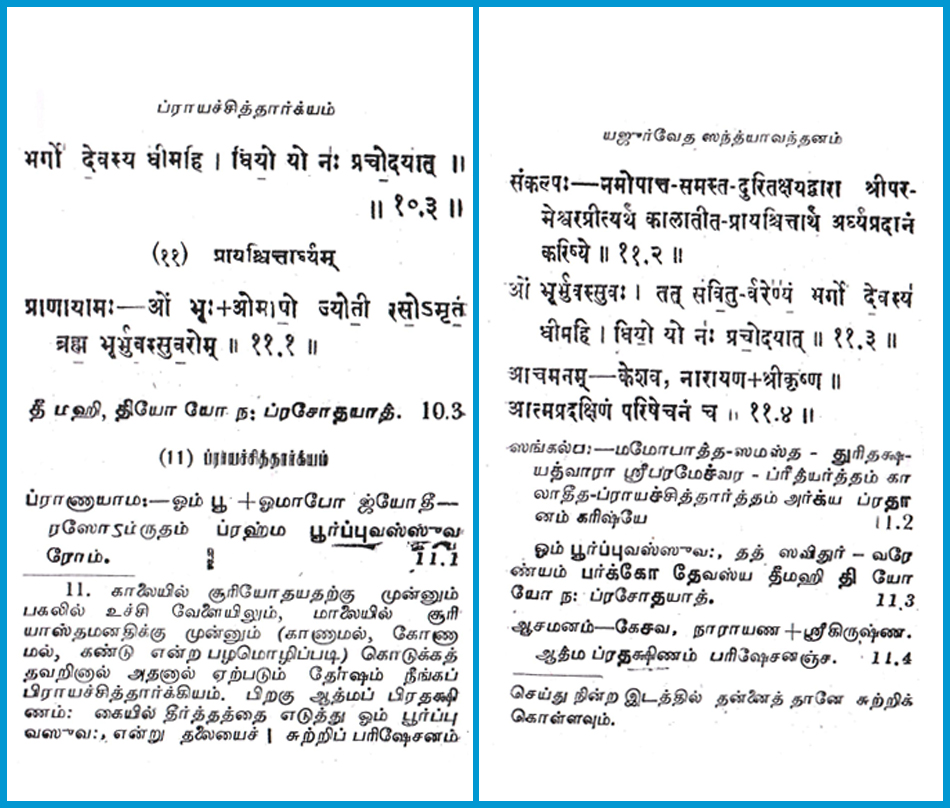 ப்ராயச்சித்தார்க்யம்
भर्गो॑ दे॒वस्य॑ धीमहि । धियो॒ यो नः॑ प्रचो॒दया᳚त् ॥
॥ १०.३ ॥
(११) प्रायश्चित्तार्घ्यम्
प्राणायामः—ओं भूः+ओमापो॒ ज्योती॒ रसो॒ऽमृतं॒
ब्रह्म॒ भूर्भुव॒स्सुव॒रोम् ॥ ११.१ ॥
தீ மஹி, தியோ யோ ந: ப்ரசோதயாத். 10.3
(11) ப்ராயச்சித்தார்க்யம்
ப்ராணாயாம:—ஓம் பூ +ஓமாபோ ஜ்யோதீ—
ரஸோऽம்ருதம் ப்ரஹ்ம பூர்ப்புவஸ்ஸுவ
ரோம். 11.1
11. காலையில் சூரியோதயதற்கு முன்னும்
பகலில் உச்சி வேளையிலும், மாலையில் சூரி
யாஸ்தமனதிக்கு முன்னும் (காணாமல், கோணா
மல், கண்டு என்ற பழமொழிப்படி) கொடுக்கத்
தவறினால் அதனால் ஏற்படும் தோஷம் நீங்கப்
பிராயச்சித்தார்க்கியம். பிறகு ஆத்மப் பிரதக்ஷி
ணம்: கையில் தீர்த்தத்தை எடுத்து ஓம் பூர்ப்பு
வஸுவ:, என்று தலையைச் சுற்றிப் பரிஷேசனம்
யஜுர்வேத ஸந்த்யாவந்தனம்
संकल्पः—ममोपात्त-समस्त-दुरितक्षयद्वारा श्रीपर-
मेश्वरप्रीत्यर्थं कालातीत-प्रायश्चित्तार्थं अर्घ्यप्रदानं
करिष्ये ॥ ११.२ ॥
ओं भूर्भुवस्सुवः । तत् स॑वि॒तु-र्वरे᳚ण्यं॒ भर्गो॑ दे॒वस्य॑
धीमहि । धियो॒ यो नः॑ प्रचो॒दया᳚त् ॥ ११.३ ॥
आचमनम्—केशव, नारायण+श्रीकृष्ण ॥
आत्मप्रदक्षिणं परिषेचनं च ॥ ११.४ ॥
ஸங்கல்ப:—மமோபாத்த-ஸமஸ்த - துரிதக்ஷ-
யத்வாரா ஸ்ரீபரமேச்வர - ப்ரீத்யர்த்தம் கா
லாதீத-ப்ராயச்சித்தார்த்தம் அர்க்ய ப்ரதா
னம் கரிஷ்யே 11.2
ஓம் பூர்ப்புவஸ்ஸுவ:, தத் ஸவிதுர் – வரே
ண்யம் பர்க்கோ தேவஸ்ய தீமஹி தி யோ
யோ ந: ப்ரசோதயாத். 11.3
ஆசமனம்—கேசவ, நாராயண +ஸ்ரீகிருஷ்ண.
ஆத்ம ப்ரதக்ஷிணம் பரிஷேசனஞ்ச. 11.4
செய்து நின்ற இடத்தில் தன்னைத் தானே சுற்றிக்
கொள்ளவும்.